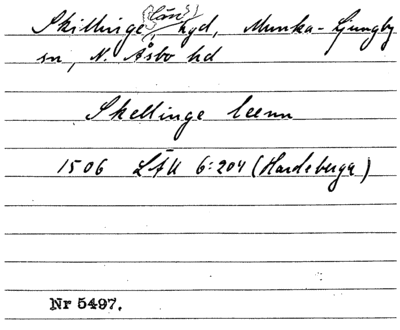 Skillinge (län?), hyd, Munka-Ljungby
sn, N. Åsbo hd
Skellinge leenn
1506 LÄU 6:204 (Hardeberga)
Nr 5497.